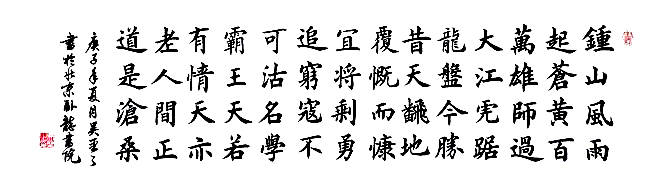 鍾山風雨
起蒼黄百
萬雄師過
大江虎踞
龍盤今勝
昔天翻地
覆慨而慷
宜将剩勇
追窮寇不
可沽名學
霸王天若
有情天亦
老人間正
道是滄桑
庚子年夏月吴
書於北京卧龍書院